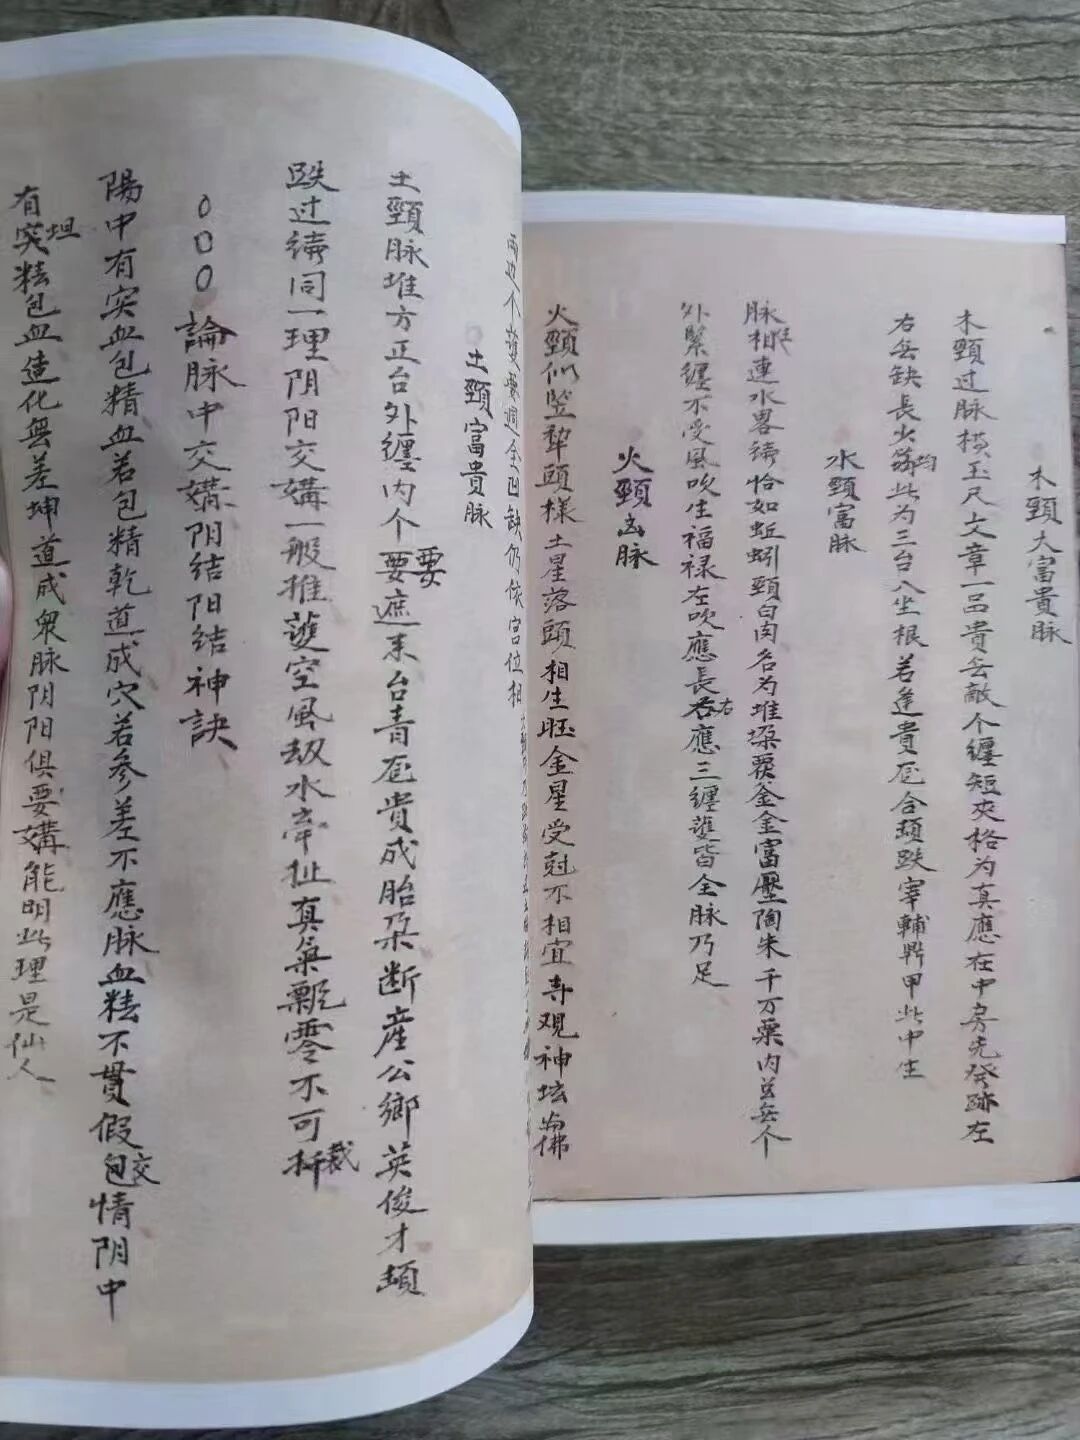 木頸大富貴脉
木頸过脉横玉尺文章一品貴无敵个缠短夾格为真應在中房先發跡左
右缺長少均此为三台入坐根若逢貴合頸跌宰輔鼎甲此中生
水頸富脉
脉相連水畧綉恰如蚯蚓頸白肉名为堆朶覆釜金富壓陶朱千万粟内个
外緊缠不受風吹生福禄左吹應長右應三缠護皆全脉乃足
火頸凶脉
火頸似竖犂頭樣土星落頭相生旺金星受尅不相宜寺观神坛佛
两边个護要週全凹缺仍依宫位相
土頸富貴脉
土頸脉堆方正台外缠内个要遮來台青貴成胎朶断産公卿英俊才頸
跌过綉同一理阴阳交媾一般推護空風刼水牽扯真氣飄零不可裁
○○○論脉中交媾阴结阳结神訣
陽中有突血包精血若包精乾道成穴若参差不應脉血精不貫假交情阴中
有坦精包血造化無差坤道成泉脉阴阳俱要媾能明此理是仙人